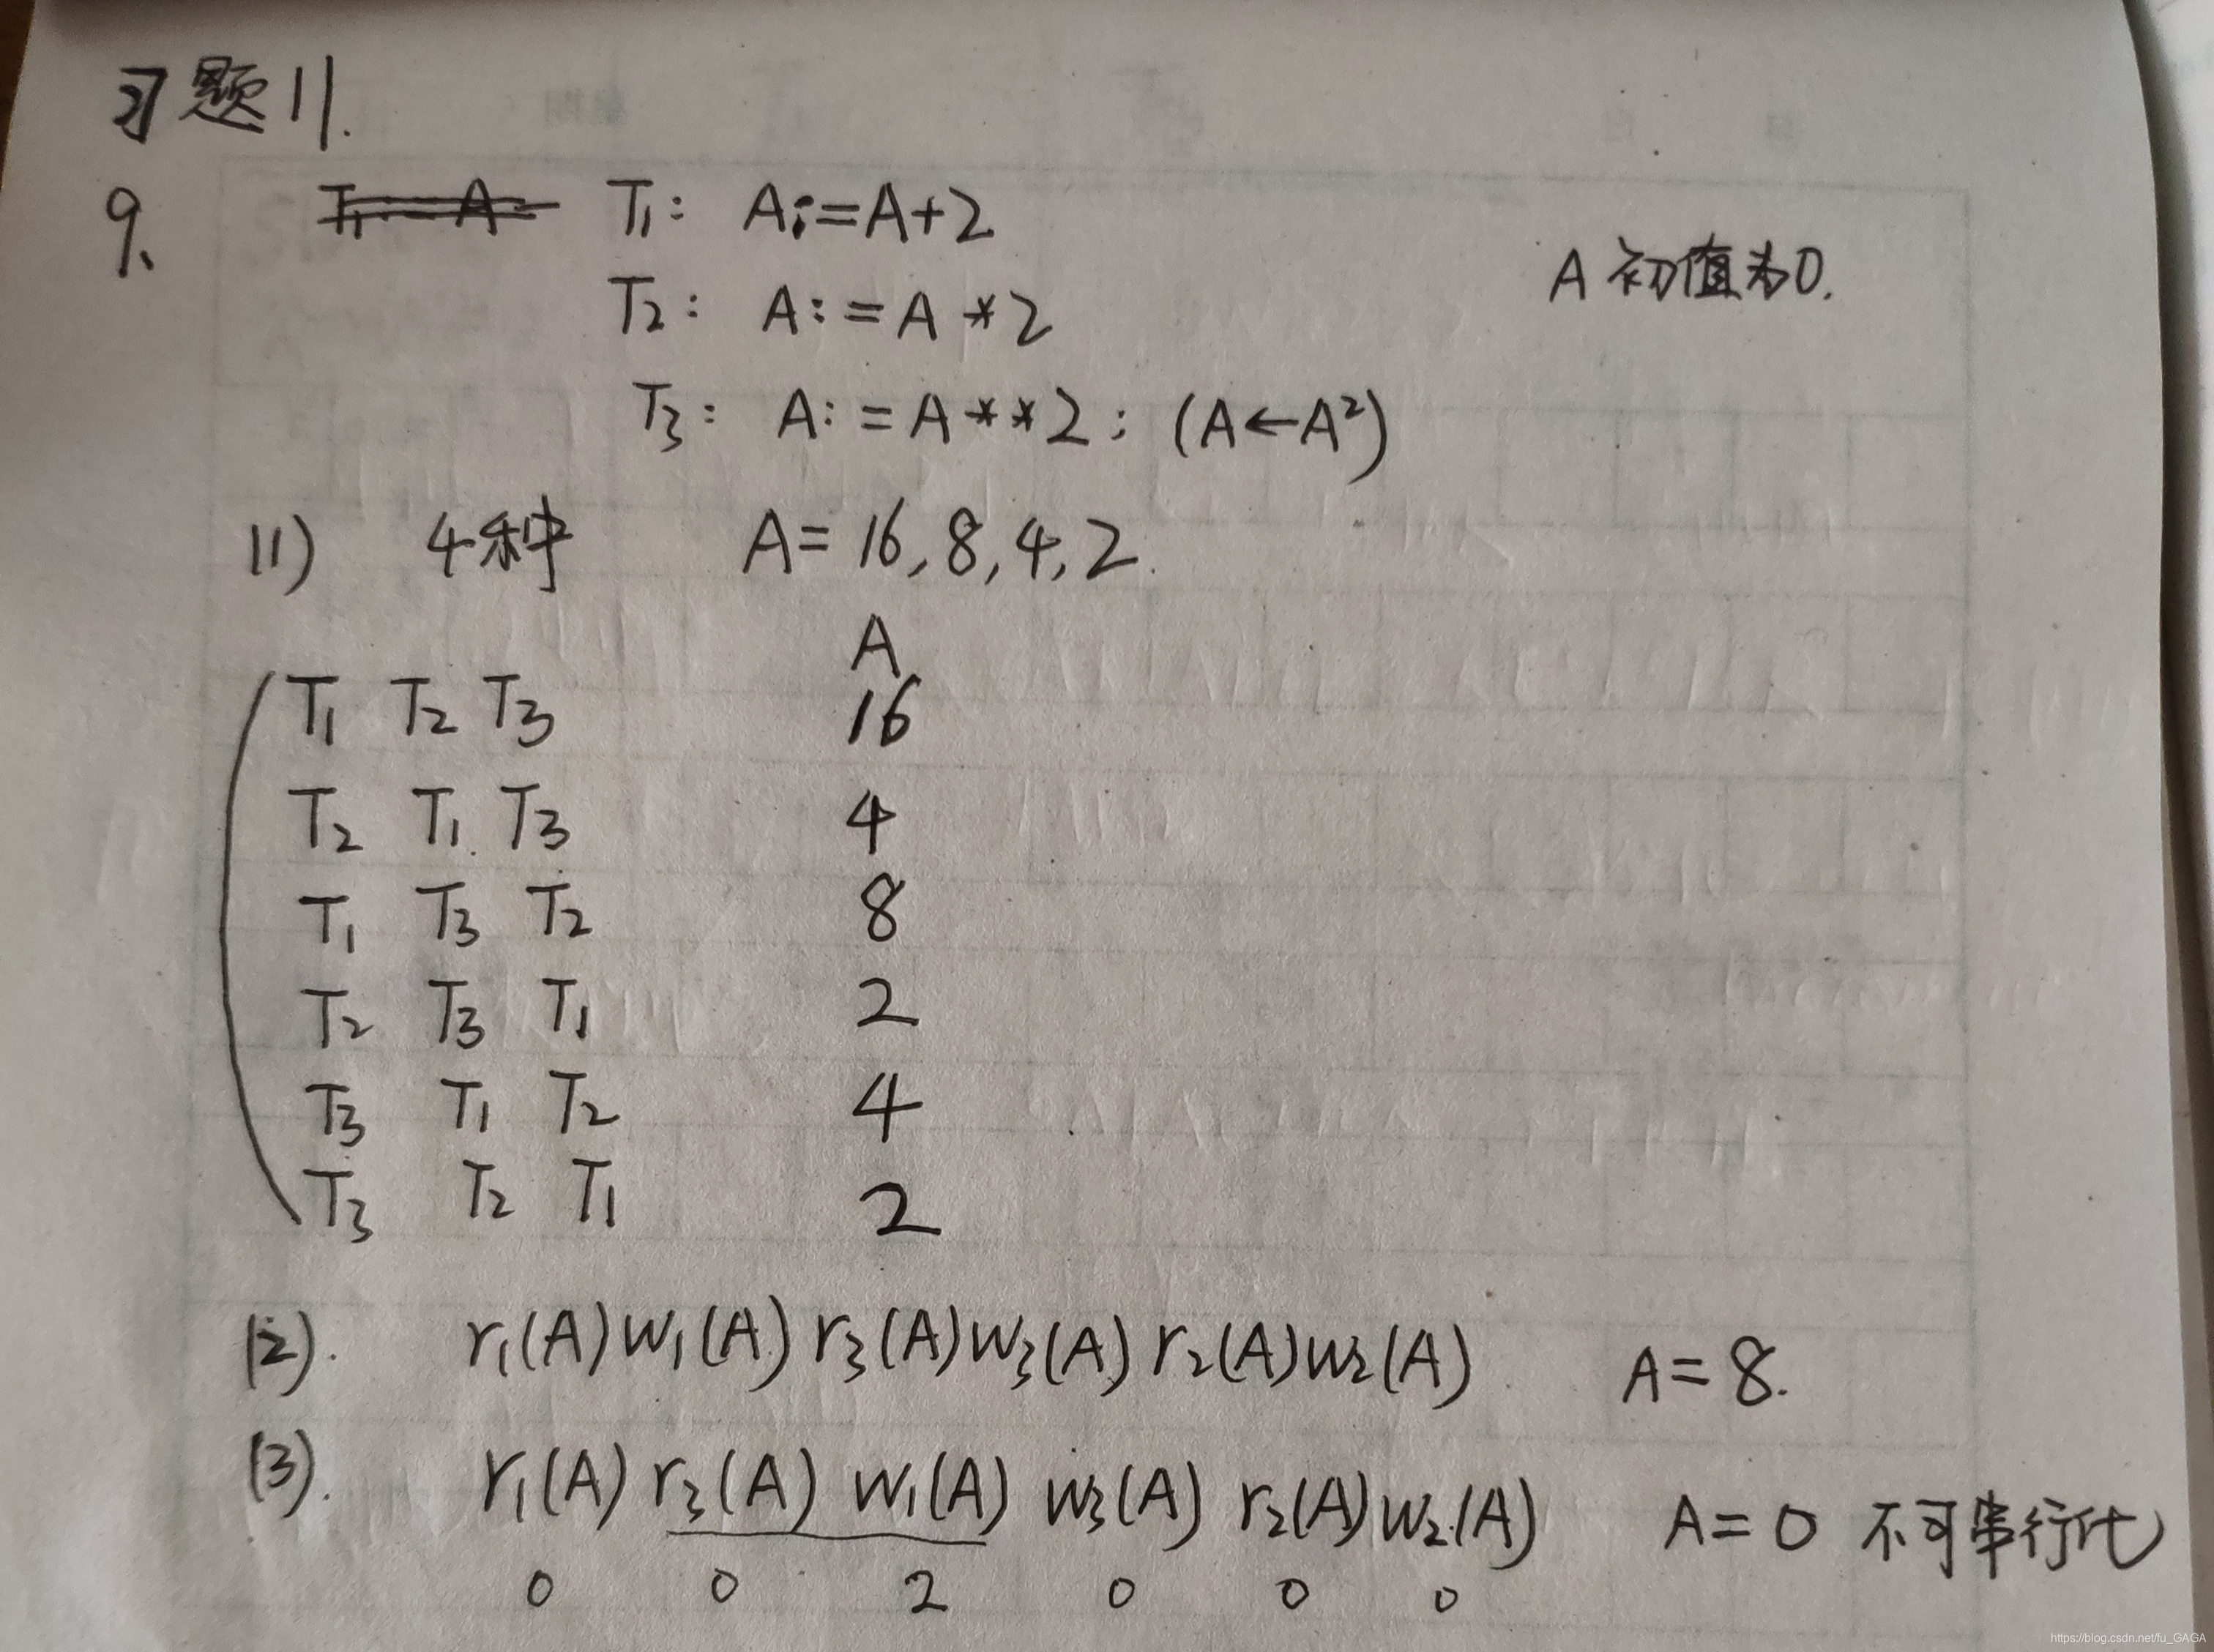 习题11.
9. T1: A:=A+2
A初值为0.
T2: A:=A*2
T3: A:=A**2; (A←A²)
(1) 4种 A=16,8,4,2.
A
T1 T2 T3 16
T2 T1 T3 4
T1 T3 T2 8
T2 T3 T1 2
T3 T1 T2 4
T3 T2 T1 2
(2). r1(A)w1(A)r3(A)w3(A)r2(A)w2(A) A=8.
(3). r1(A)r3(A)w1(A)w3(A)r2(A)w2(A) A=0 不可串行化
0 0 2 0 0 0
https://blog.csdn.net/fu_GAGA